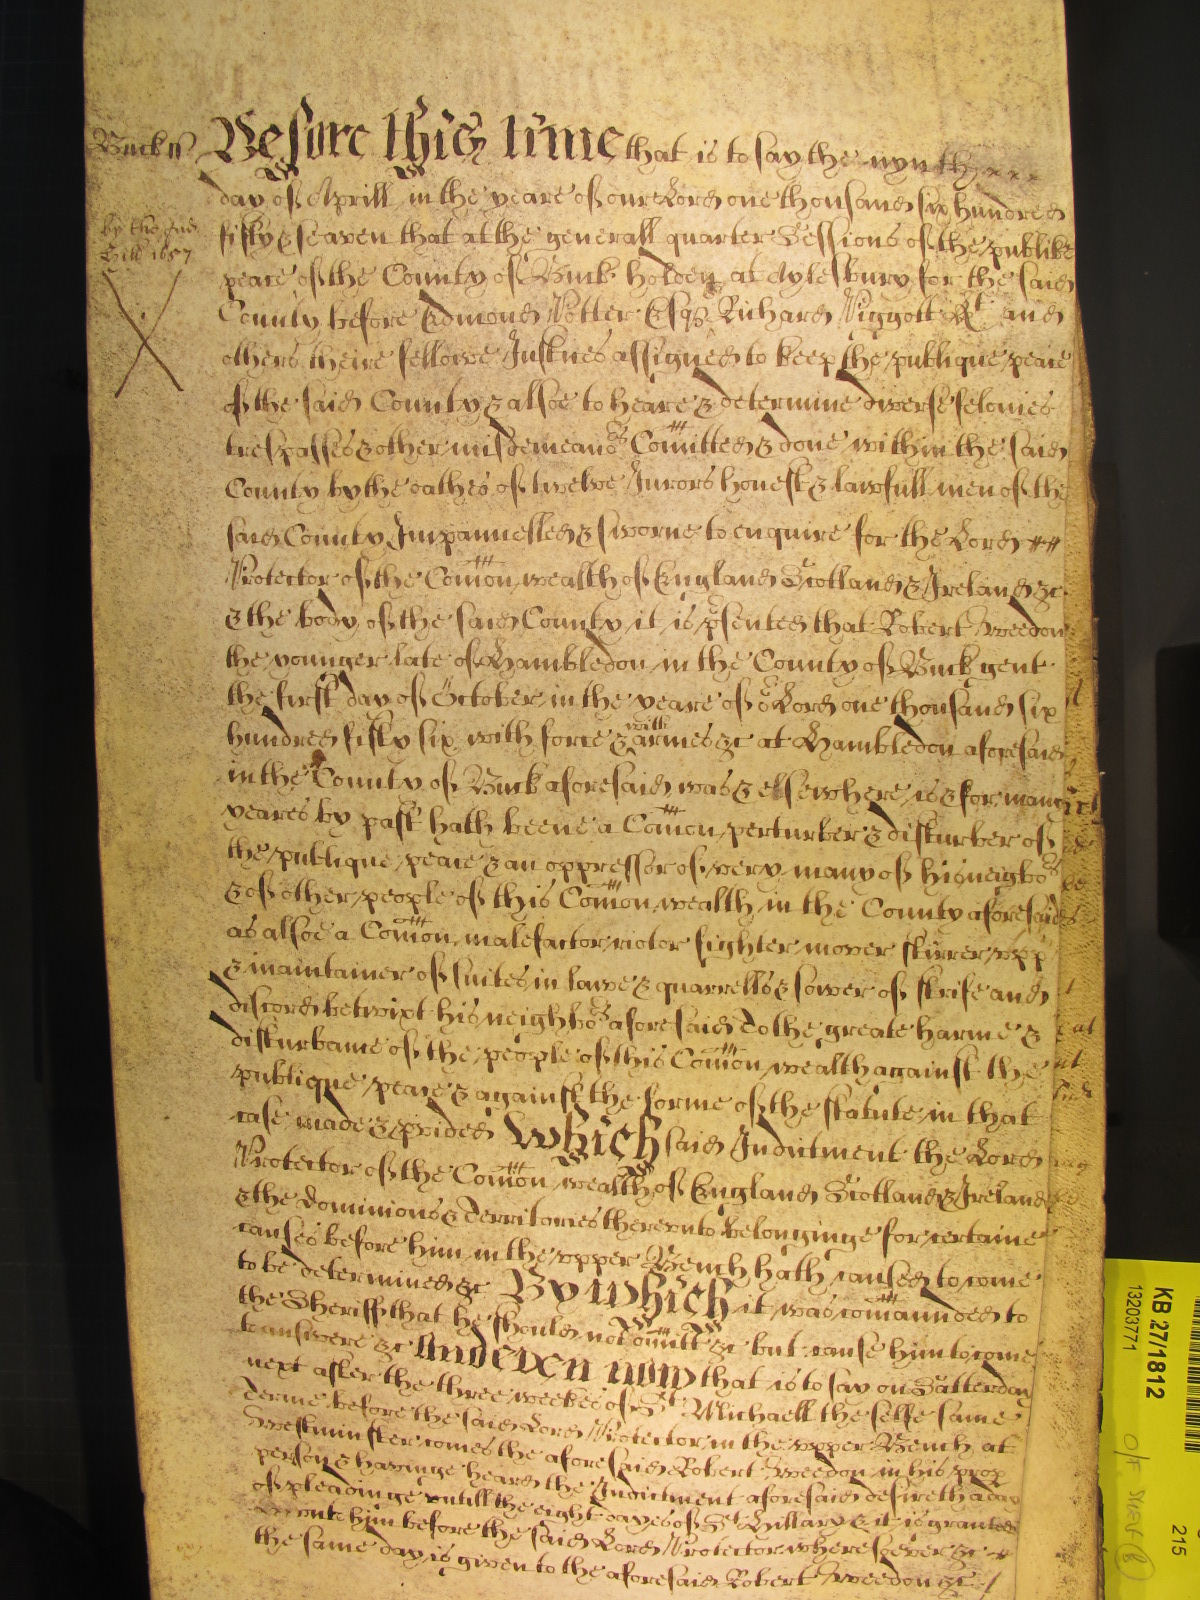 Buck ss Before this time that is to say the nynth
day of Aprill in the yeare of our Lord one thousand six hundred
by the Ind
fifty & seaven that at the generall quarter Sessions of the publike
Hill 1657
peace of the County of Buck holden at Aylesbury for the said
County before Edmond Potter Esqr Richard Piggott Kt and
others theire fellowe Justices assigned to keep the publique peace
of the said County & alsoe to heare & determine diverse felonies
trespasses & other misdemeanors Comitted & done within the said
County by the oathes of twelve Jurors honest & lawfull men of the
said County Impannelled & sworne to enquire for the Lord
Protector of the Comon wealth of England Scotland & Ireland &c
& the body of the said County it is psented that Robert Weedon
the younger late of Hambledon in the County of Buck gent
the first day of October in the yeare of or Lord one thousand six
hundred fifty six with force & with armes &c at Hambledon aforesaid
in the County of Buck aforesaid was & elsewhere is & for many
yeares by past hath beene a Comon perturber & disturber of
the publique peace & an oppressor of very many of his neigbors
& of other people of this Comon wealth in the County aforesaid
as alsoe a Comon malefactor riotor fighter mover stirrer upp
& maintainer of suites in lawe & quarrells & sower of strife and
discord betwixt his neighbors aforesaid To the greate harme &
disturbance of the people of this Comon wealth against the
publique peace & against the forme of the statute in that
case made & pvided Which said Indictment the Lord
Protector of the Comon wealth of England Scotland & Ireland
& the Dominions & Territories thereunto belonginge for certaine
causes before him in the upper Bench hath caused to come
to be determined &c By which it was comannded to
the Sheriff that he should not omitt &c but cause him to come
to answere &c And even now that is to say on Satterday
next after the three weekes of St Michaell the selfe same
Terme before the said Lord Protector in the upper Bench at
Westminster comes the aforesaid Robert Weedon in his prop
person & havinge heard the Indictment aforesaid desireth a day
of pleadinge untill the eight dayes of St Hillary & it is granted
unto him before the said Lord Protector wheresoever &c
the same day is given to the aforesaid Robert Weedon &c
KB 27/1812
13203771
215